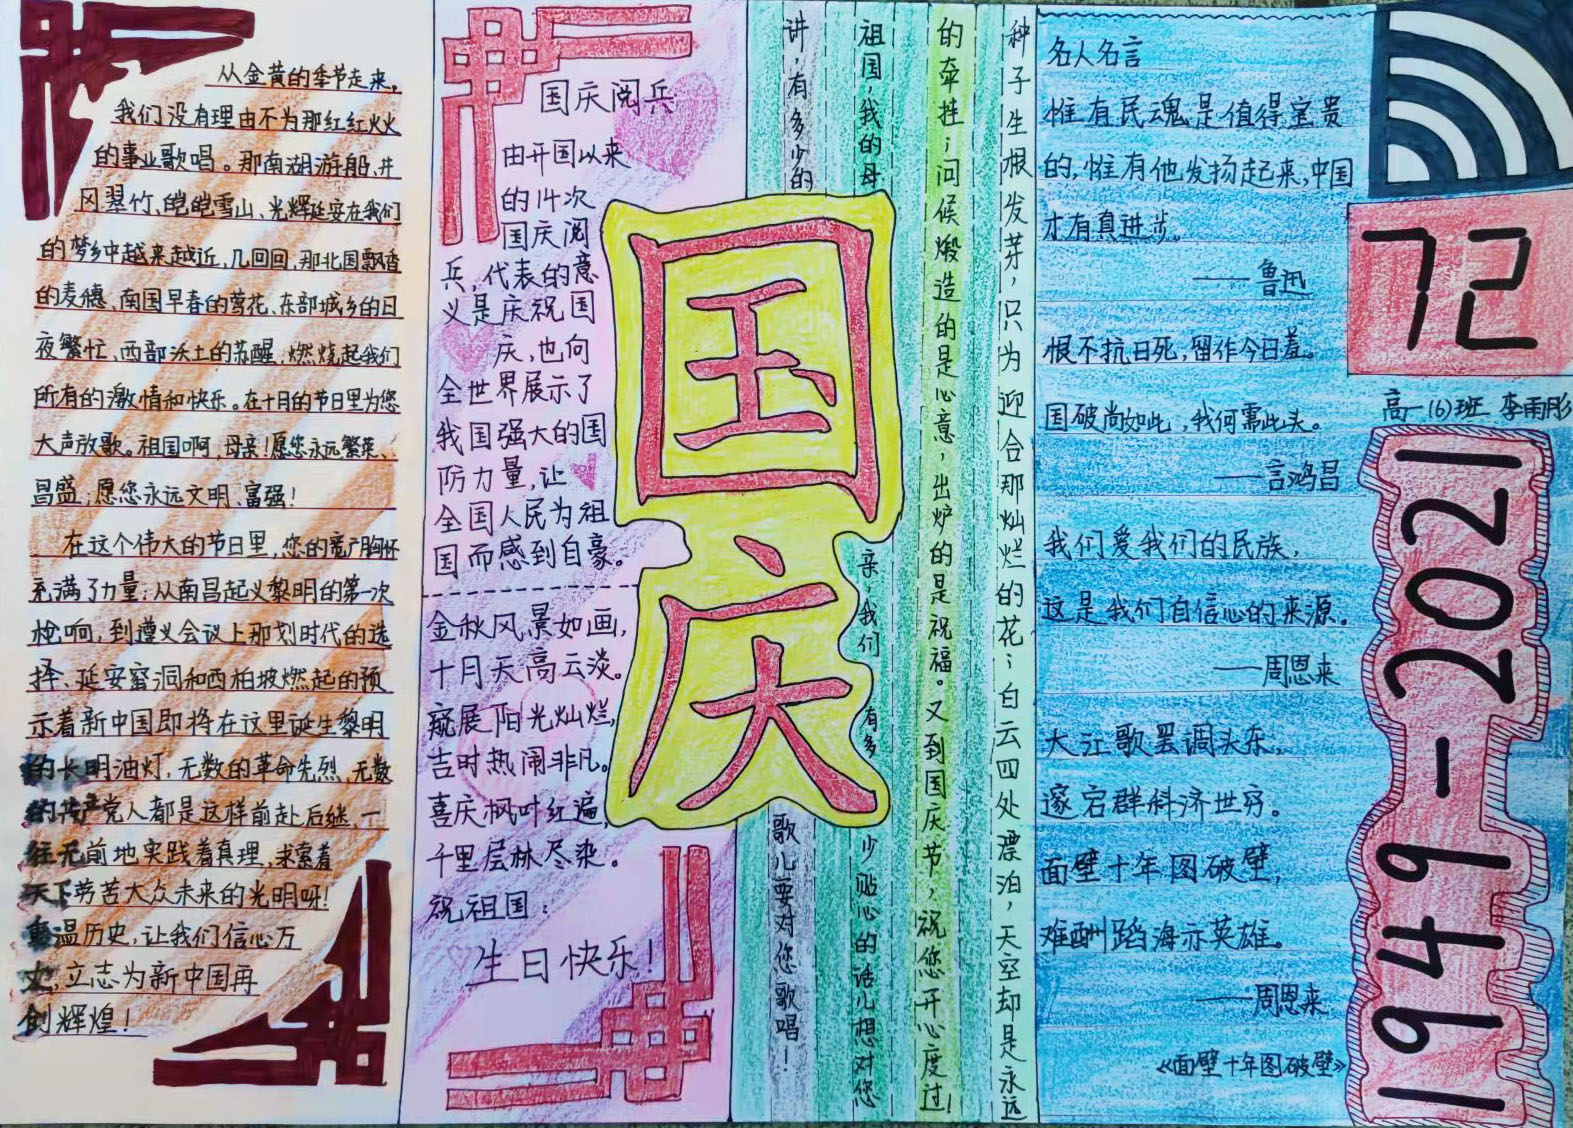 从金黄的季节走来,
我们没有理由不为那红红火火
的事业歌唱。那南湖游船、井
冈翠竹、皑皑雪山、光辉延安在我们
的梦乡中越来越近,几回回,那北国飘香
的麦穗、南国早春的雪花、东部城乡的日
夜繁忙、西部沃土的苏醒,燃烧起我们
所有的激情和快乐。在十月的节日里为您
大声放歌。祖国啊,母亲!愿您永远繁荣、
昌盛;愿您永远文明、富强!
在这个伟大的节日里,您的宽广胸怀
充满了力量:从南昌起义黎明的第一次
枪响,到遵义会议上那划时代的选
择、延安窑洞和西柏坡燃起的预
示着新中国即将在这里诞生黎明
的长明油灯,无数的革命先烈、无数
的共产党人都是这样前赴后继、一
往无前地实践着真理,求索着
天下劳苦大众未来的光明呀!
重温历史,让我们信心万
丈,立志为新中国再
创辉煌!
国庆阅兵
由开国以来
的14次
国庆阅
兵,代表的意
义是庆祝国
庆,也向
全世界展示了
我国强大的国
防力量,让
全国人民为祖
国而感到自豪。
金秋风景如画,
十月天高云淡。
窥展阳光灿烂,
吉时热闹非凡。
喜庆枫叶红遍,
千里层林尽染。
祝祖国:
生日快乐!
国庆
种子生根发芽,只为迎合那灿烂的花;白云四处漂泊,天空却是永远
的牵挂;问候煅造的是心意,出炉的是祝福。又到国庆节,祝您开心度过!
祖国,我的母亲,我们有多少贴心的话儿想对您
讲,有多少的歌儿要对您歌唱!
名人名言
惟有民魂是值得宝贵
的,惟有他发扬起来,中国
才有真进步。
——鲁迅
恨不抗日死,留作今日羞。
国破尚如此,我何需此头。
——吉鸿昌
我们爱我们的民族,
这是我们自信心的来源。
——周恩来
大江歌罢调头东,
邃宕群科济世穷。
面壁十年图破壁,
难酬蹈海亦英雄。
——周恩来
《面壁十年图破壁》
72
高一(6)班 李雨彤
1949-2021